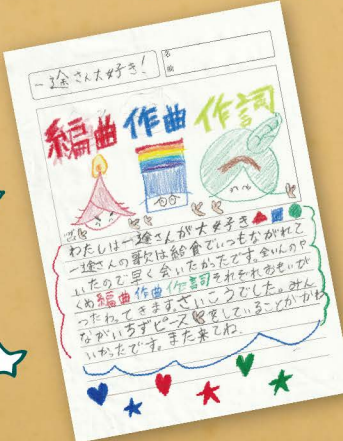 一途さん大好き!
名前
編曲 作曲 作詞
わたしは一途さんが大好き
一途さんの歌は給食でいつもながれて
いたので早く会いたかったです。全いんの中
くめ編曲作曲作詞それぞれおもいが
つたわってきます。さいこうでした。みん
ながいちずピースをしていることがかわ
いかったです。また来てね。